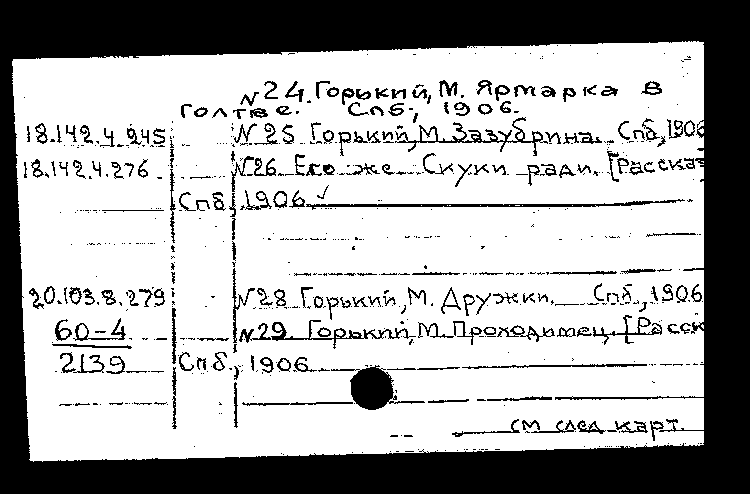 N24. Горький, М. Ярмарка в
Голтве. Спб., 1906.
18.142.4.245 N25 Горький, М. Зазубрина. Спб, 1906
18.142.4.276. N26. Его же. Скуки ради. [Рассказ
Спб, 1906.
20.103.8.279 N28 Горький, М. Дружки. Спб, 1906
60-4 N29. Горький, М. Проходимец. [Расск
2139 Спб, 1906
см след карт.